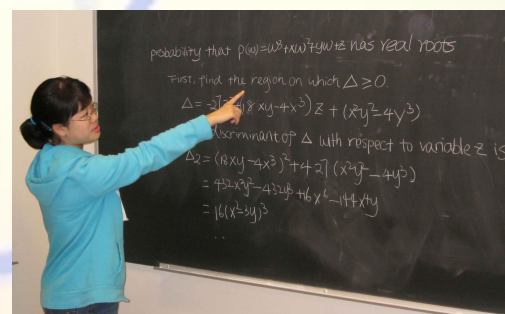 probability that p(ω)=ω³+xω²+yω+z has real roots
First, find the region on which Δ≥0.
Δ=-27 (18xy-4x³)z + (x²y²-4y³)
discriminant of Δ with respect to variable z is
Δ₂=(18xy-4x³)²+4·27(x²y²-4y³)
=432x²y²-432y³+16x⁶-144x⁴y
=16(x²-3y)³
..